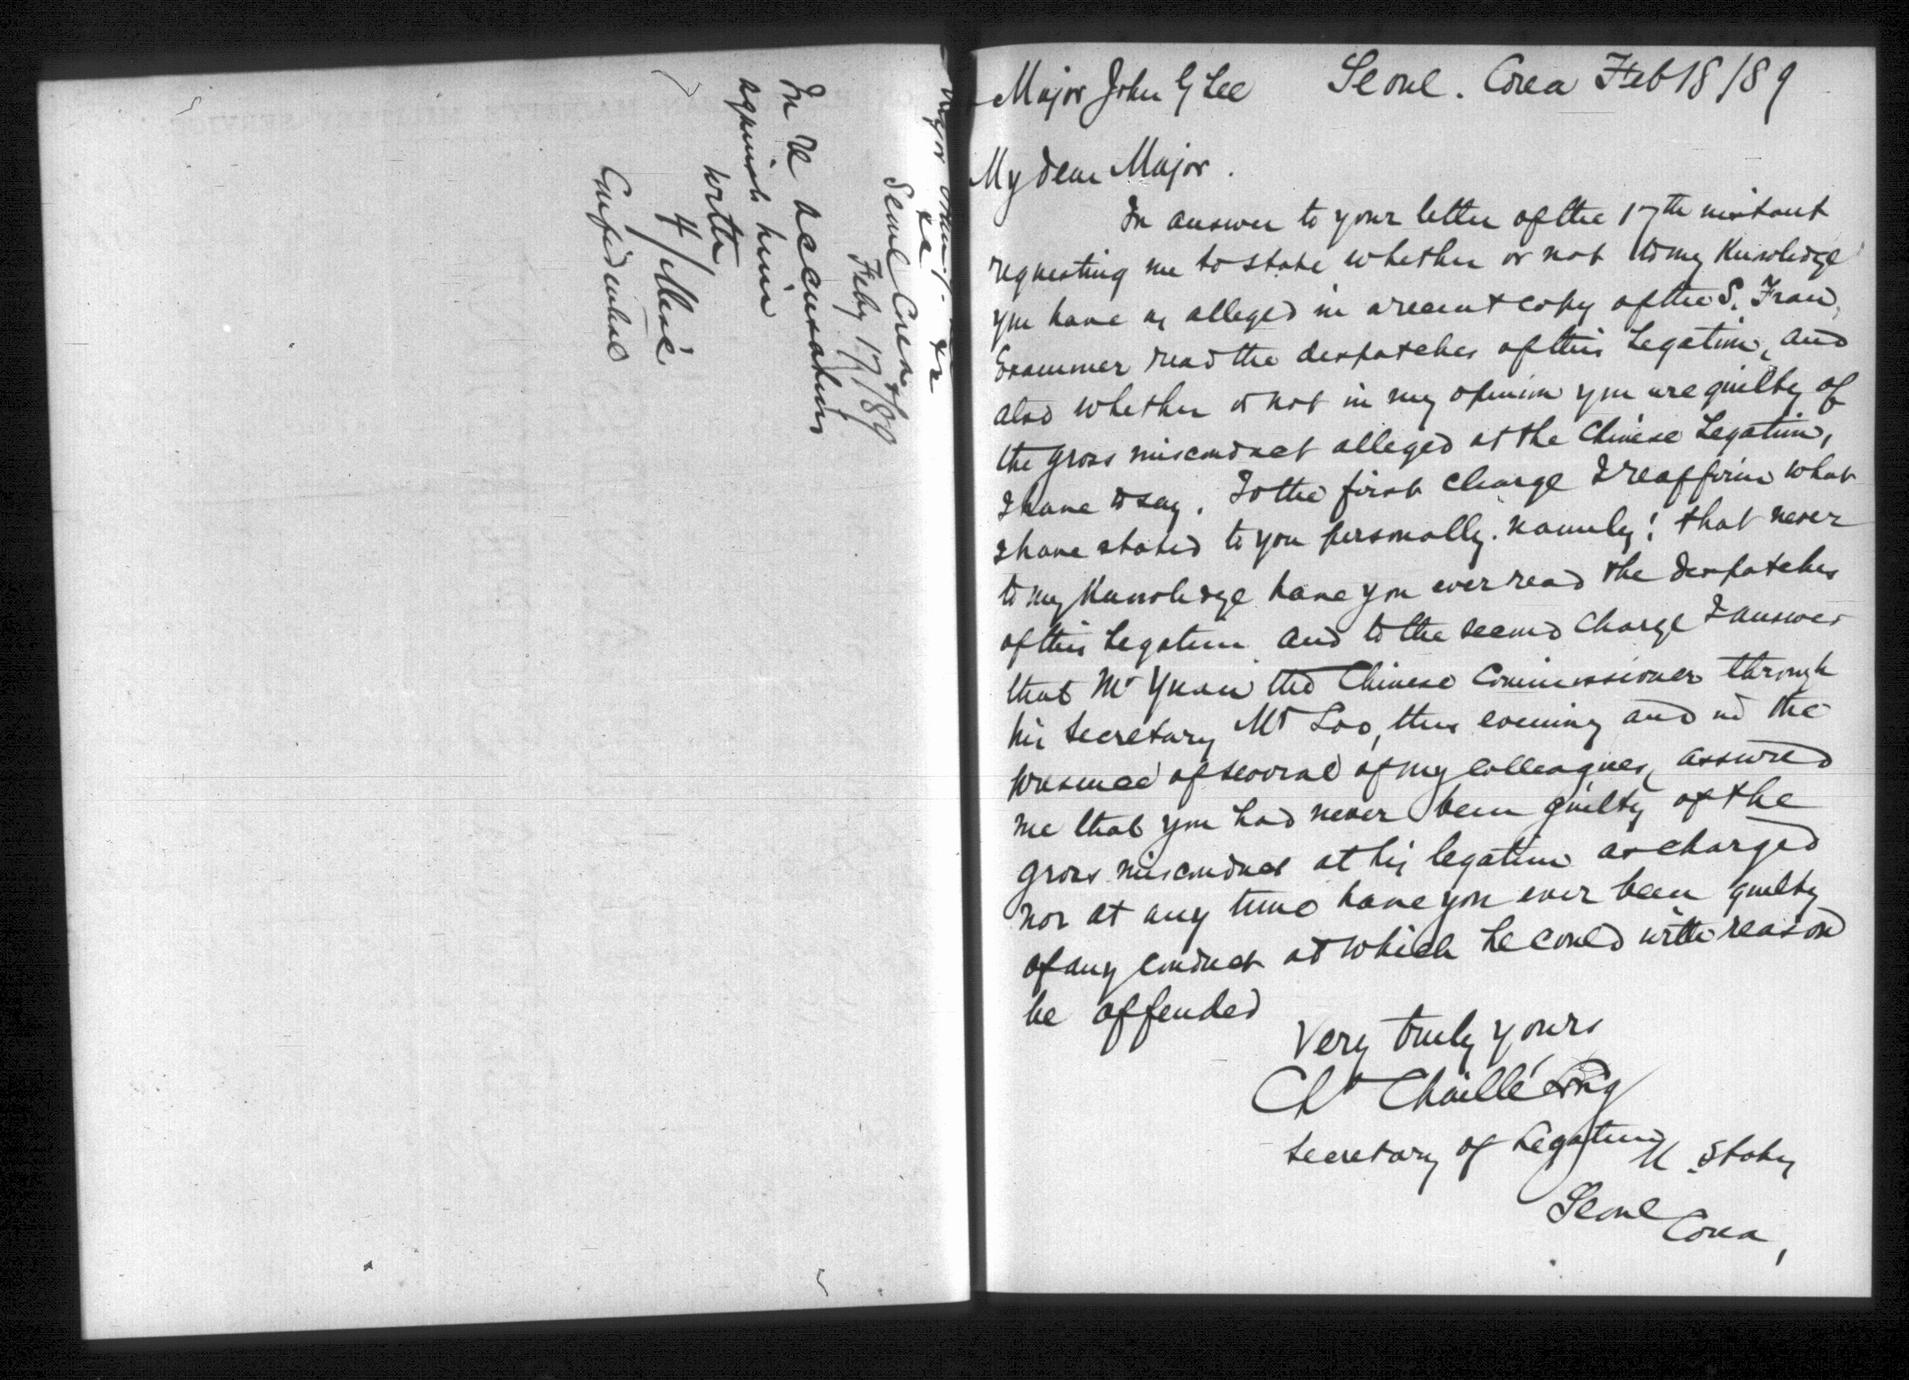 Seoul Corea
Feby 17th/89
In re accusations
against him
with
4/
Confidential
Major John G Lee Seoul. Corea Feb 18/89
My dear Major.
In answer to your letter of the 17th instant
requesting me to state whether or not to my Knowledge
you have as alleged in a recent copy of the S. Fran,
Examiner read the despatches of this Legation, and
also whether or not in my opinion you are guilty of
the gross misconduct alleged at the Chinese Legation,
I have to say. To the first charge I reaffirm what
I have stated to you personally. namely; that never
to my Knowledge have you ever read the despatches
of this Legation and to the second charge I answer
that Mr Yuan the Chinese Commissioner through
his Secretary Mr Loo, this evening and in the
presence of several of my colleagues, assured
me that you had never been guilty of the
gross misconduct at his legation as charged
nor at any time have you ever been guilty
of any conduct at which he could with reason
be offended
Very truly yours
Ch Chaillé Long
Secretary of Legation U. States
Seoul
Corea,